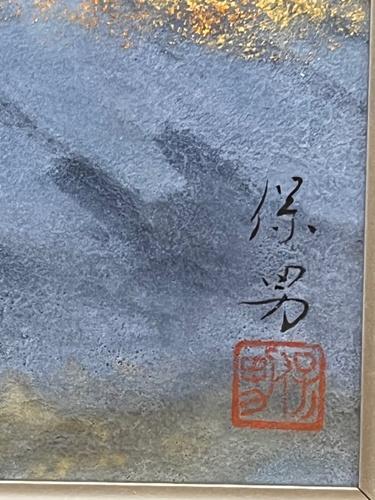 保男
保男